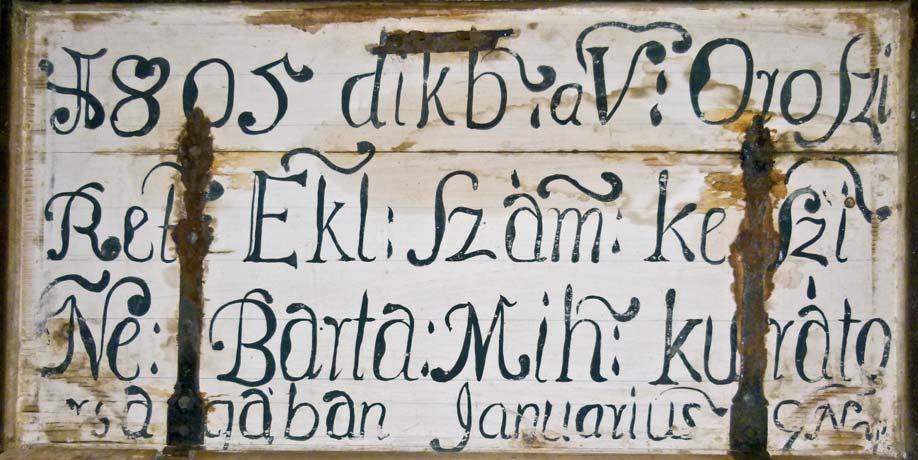 A 1805 dikb: a V: Oroszi
Ref Ekl: Szám: keszi
Ne: Barta: Mih: kurato
rsagában Januarius 9